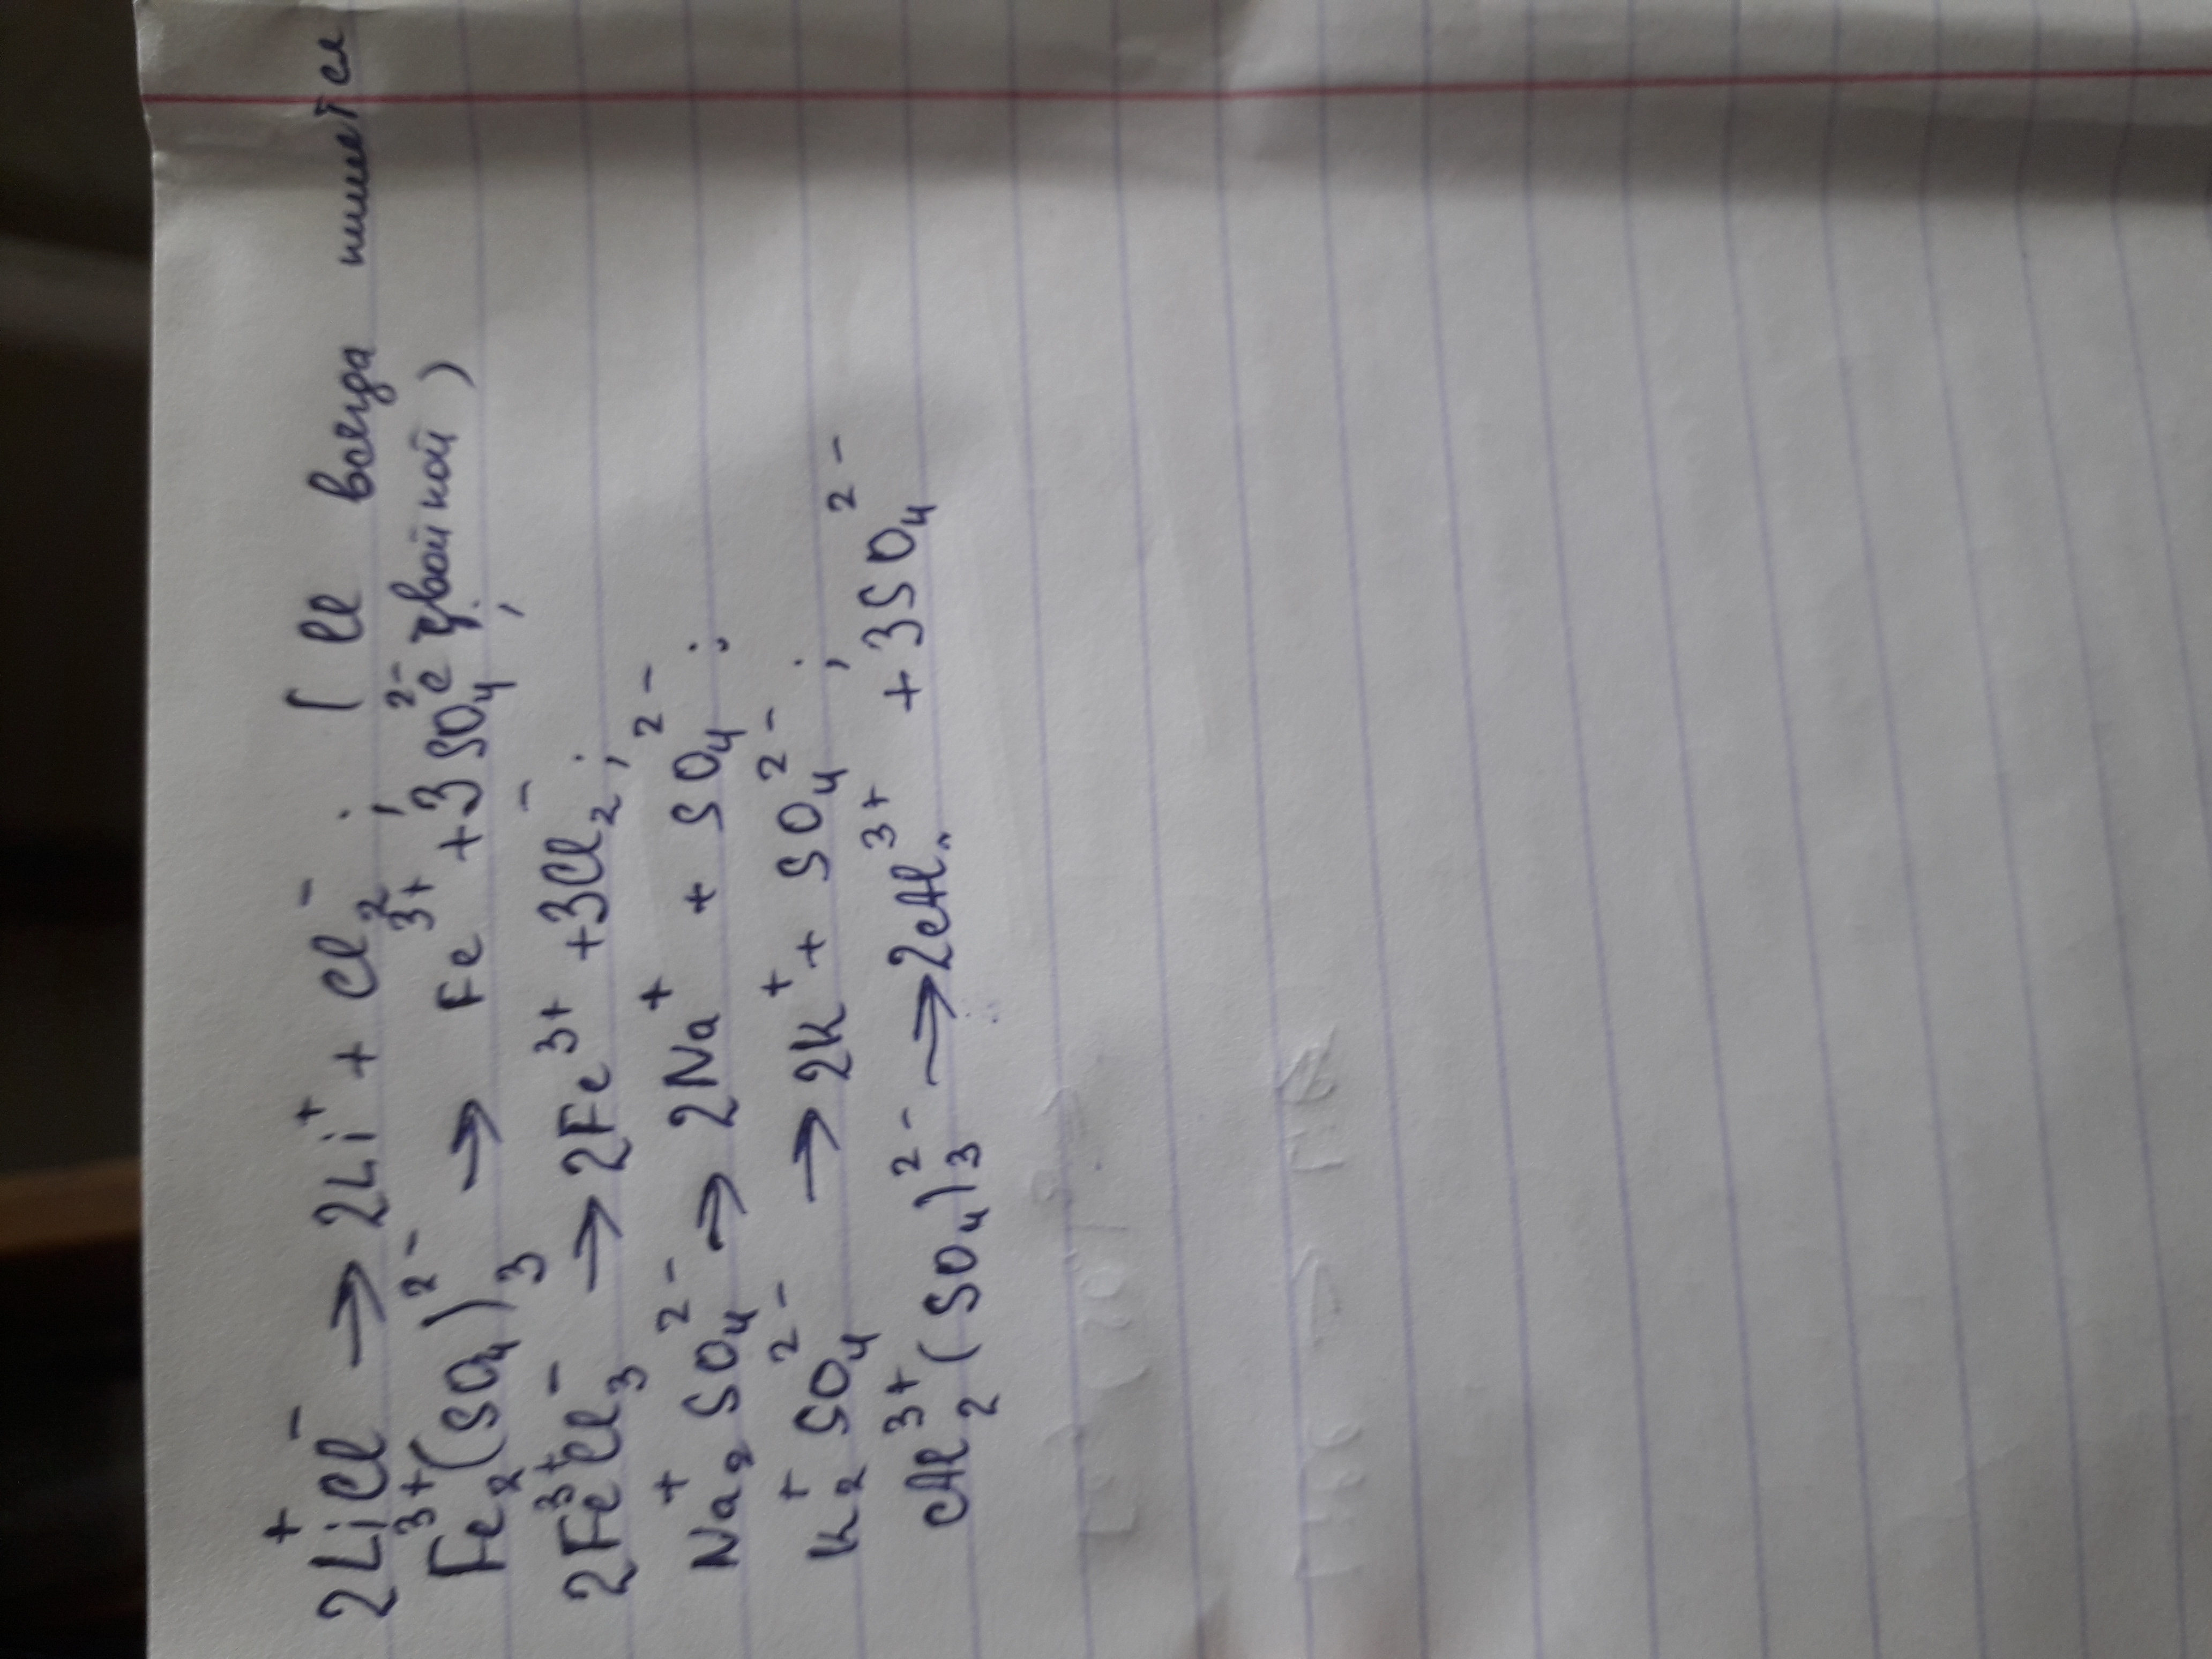 2Li⁺Cl⁻ → 2Li⁺ + Cl₂⁻ ; ( Cl всегда пишется
Fe₂³⁺(SO₄)₃²⁻ → Fe³⁺ + 3SO₄²⁻ ; с двойкой )
2Fe³⁺Cl₃⁻ → 2Fe³⁺ + 3Cl₂⁻ ;
Na₂⁺SO₄²⁻ → 2Na⁺ + SO₄²⁻ ;
K₂⁺SO₄²⁻ → 2K⁺ + SO₄²⁻ ;
Al₂³⁺(SO₄)₃²⁻ → 2Al³⁺ + 3SO₄²⁻